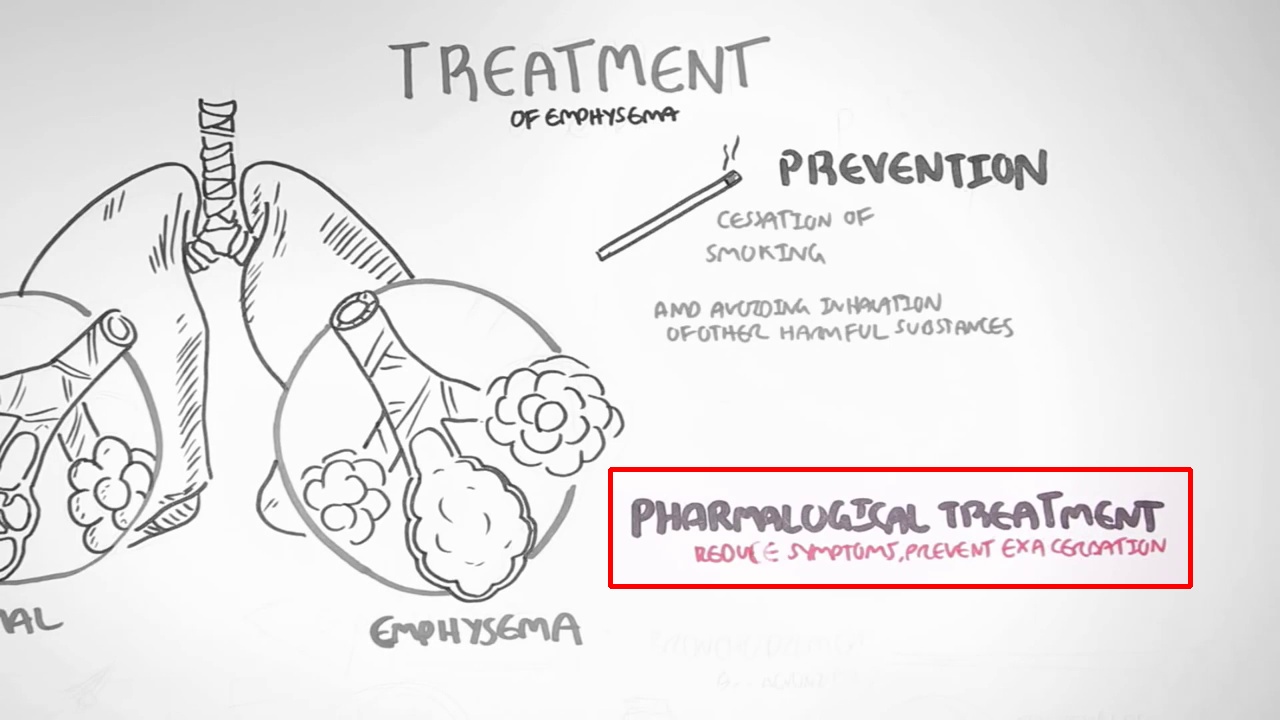 TREATMENT
OF EMPHYSEMA
PREVENTION
CESSATION OF
SMOKING
AND AVOIDING INHALATION
OF OTHER HARMFUL SUBSTANCES
PHARMALOGICAL TREATMENT
REDUCE SYMPTOMS, PREVENT EXACERBATION
EMPHYSEMA